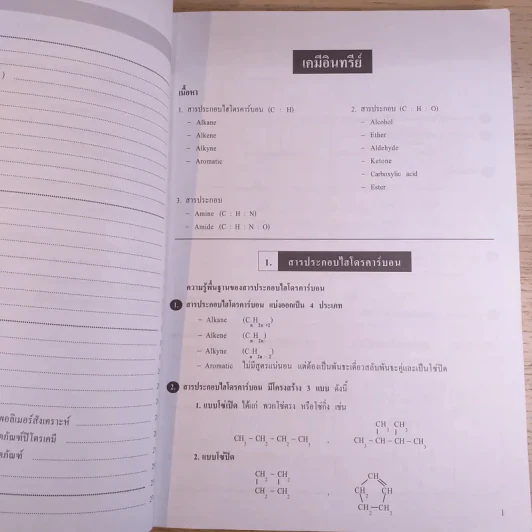 )
พอลิเมอร์สังเคราะห์
ตภัณฑ์ปิโตรเคมี
ตภัณฑ์
เคมีอินทรีย์
เนื้อหา
1. สารประกอบไฮโดรคาร์บอน (C : H)
– Alkane
– Alkene
– Alkyne
– Aromatic
2. สารประกอบ (C : H : O)
– Alcohol
– Ether
– Aldehyde
– Ketone
– Carboxylic acid
– Ester
3. สารประกอบ
– Amine (C : H : N)
– Amide (C : H : N : O)
1. สารประกอบไฮโดรคาร์บอน
ความรู้พื้นฐานของสารประกอบไฮโดรคาร์บอน
1. สารประกอบไฮโดรคาร์บอน แบ่งออกเป็น 4 ประเภท
– Alkane (CnH2n+2)
– Alkene (CnH2n)
– Alkyne (CnH2n-2)
– Aromatic ไม่มีสูตรแน่นอน แต่ต้องเป็นพันธะเดี่ยวสลับพันธะคู่และเป็นโซ่ปิด
2. สารประกอบไฮโดรคาร์บอน มีโครงสร้าง 3 แบบ ดังนี้
1. แบบโซ่เปิด ได้แก่ พวกโซ่ตรง หรือโซ่กิ่ง เช่น
CH3 CH3
CH3 – CH2 – CH2 – CH3 , CH3 – CH – CH – CH3
2. แบบโซ่ปิด
CH2 – CH2
CH2 – CH2 ,
CH
CH2 CH
CH2 – CH2
1